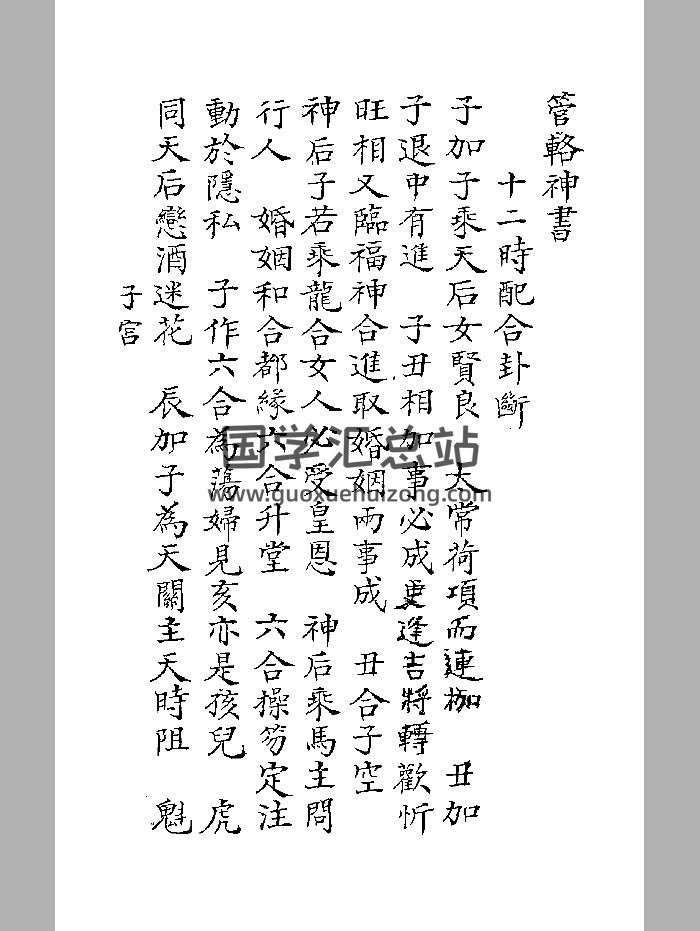 管輅神書
十二時配合卦斷
子加子乘天后女賢良　太常荷項而連枷　丑加
子退中有進　子丑相加事必成更逢吉將轉歡忻
旺相又臨福神合進取婚姻兩事成　丑合子空
神后子若乘龍合女人必受皇恩　神后乘馬主問
行人　婚姻和合都緣六合升堂　六合操笏定注
動於隱私　子作六合為蕩婦見亥亦是孩兒　虎
同天后戀酒迷花　辰加子為天關主天時阻　魁
子宮
国学汇总站
www.guoxuehuizong.com